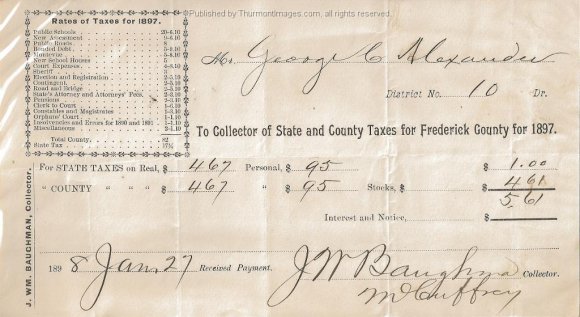 Published by ThurmontImages.com, all rights reserved.
Rates of Taxes for 1897.
Public Schools
New Assessment
Public Roads 8
Bonded Debt
Montevue
New School Houses 5
Court Expenses
Sheriff 3
Election and Registration
Contingent
Road and Bridge
State's Attorney and Attorneys' Fees
Pensions
Clerk to Court
Constables and Magistrates
Orphans' Court
Insolvencies and Errors for 1890 and 1891
Miscellaneous
Total County 82
State Tax 17¾
J. WM. BAUGHMAN, Collector.
Mr. George C Alexander
District No. 10 Dr.
To Collector of State and County Taxes for Frederick County for 1897.
For STATE TAXES on Real, $ 467 Personal, $ 95 $ 1.00
" COUNTY " " $ 467 " $ 95 Stocks, $ $ 4 61
5.61
Interest and Notice, $
1898 Jan 27 Received Payment. J W Baughman Collector.
McCuffrey